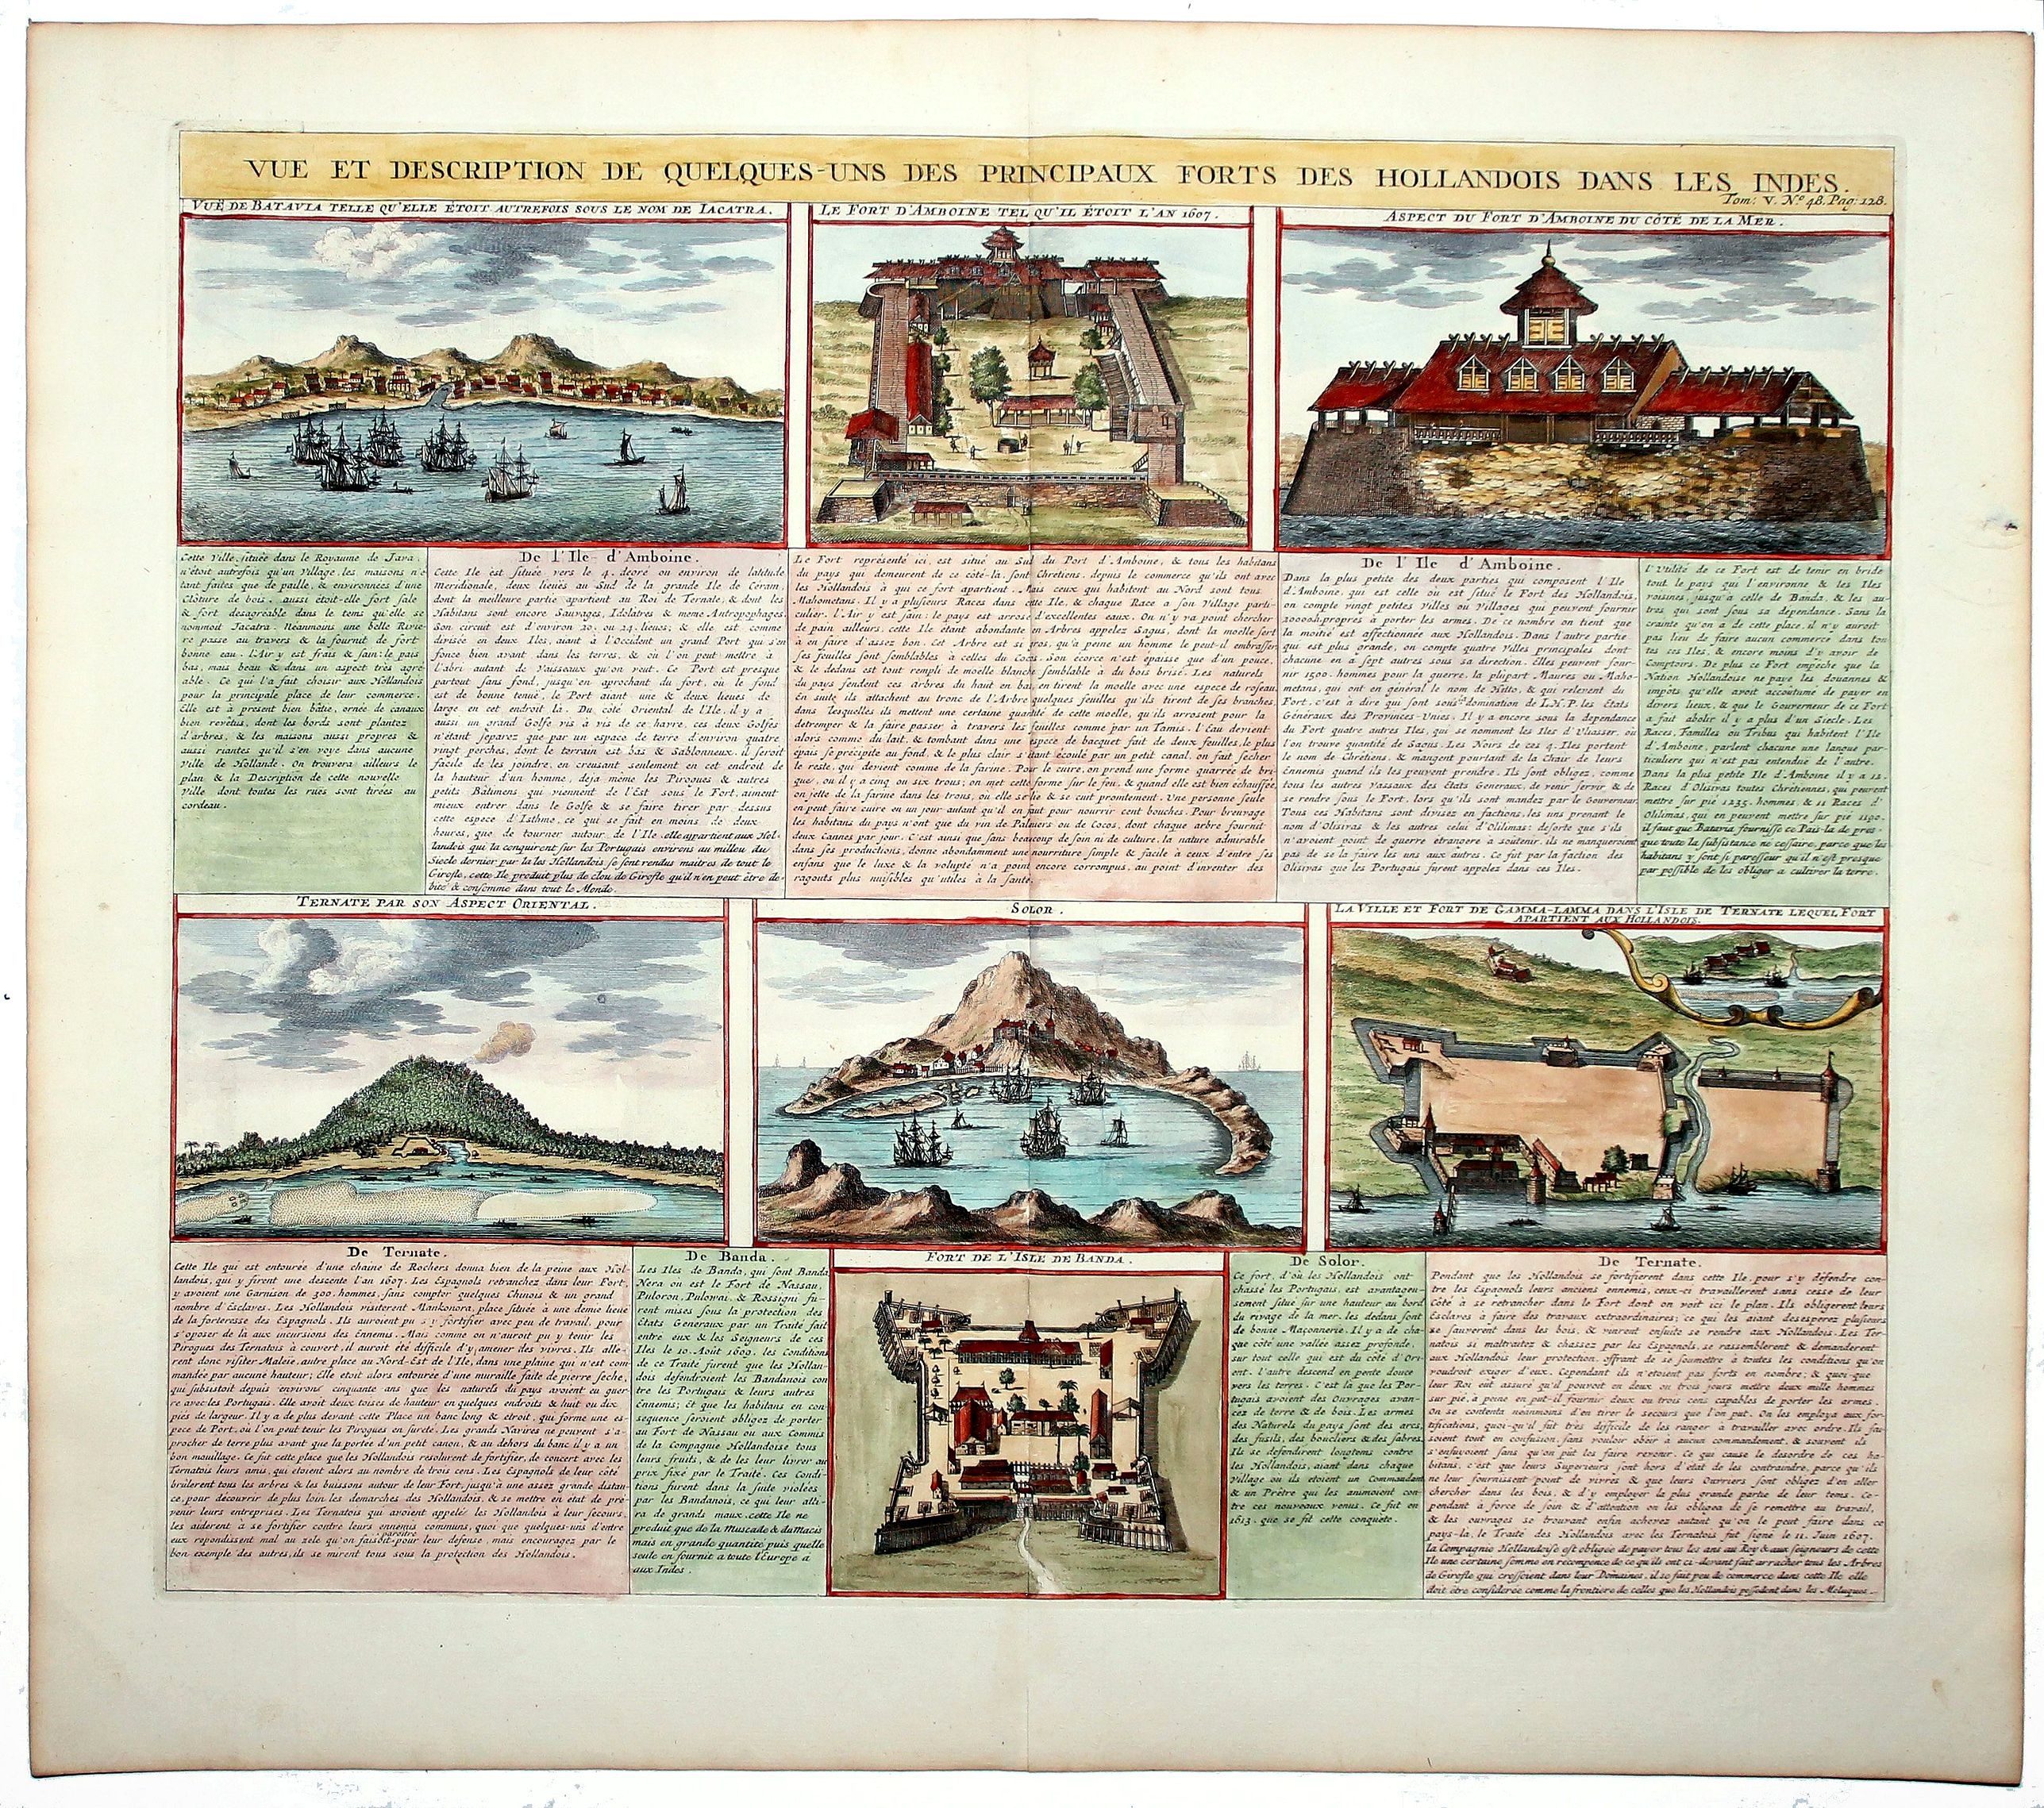 VUE ET DESCRIPTION DE QUELQUES-UNS DES PRINCIPAUX FORTS DES HOLLANDOIS DANS LES INDES.
Tom: V. N.º 48. Pag: 128.
VUË DE BATAVIA TELLE QU'ELLE ÉTOIT AUTREFOIS SOUS LE NOM DE IACATRA.
LE FORT D'AMBOINE TEL QU'IL ÉTOIT L'AN 1607.
ASPECT DU FORT D'AMBOINE DU CÔTÉ DE LA MER.
Cette Ville, située dans le Royaume de Java,
n'étoit autrefois qu'un Village, les maisons n'é
tant faites que de paille, & environnées d'une
Clôture de bois, aussi étoit-elle fort sale
& fort desagréable dans le tems qu'elle se
nommoit Jacatra. Néanmoins une belle Riviè-
re passe au travers & la fournit de fort
bonne eau. l'Air y est frais & sain: le païs
bas, mais beau & dans un aspect très agre
able. Ce qui l'a fait choisir aux Hollandois
pour la principale place de leur commerce.
Elle est à present bien bâtie, ornée de canaux
bien revêtus, dont les bords sont plantez
d'arbres, & les maisons aussi propres &
aussi riantes qu'il s'en voye dans aucune
Ville de Hollande. On trouvera ailleurs le
plan & la Description de cette nouvelle
Ville dont toutes les rues sont tirées au
cordeau.
De l'Ile d'Amboine.
Cette Ile est située vers le 4. degré ou environ de latitude
Meridionale, deux lieuës au Sud de la grande Ile de Ceram,
dont la meilleure partie apartient au Roi de Ternate, & dont les
Habitans sont encore Sauvages, Idolâtres & meme Antropophages
Son circuit est d'environ 20. ou 24. lieues, & elle est comme
divisée en deux Iles, aiant à l'Occident un grand Port qui s'en
fonce bien avant dans les terres, & où l'on peut mettre à
l'abri autant de Vaisseaux qu'on veut. Ce Port est presque
partout sans fond, jusqu'en aprochant du fort, où le fond
est de bonne tenuë, le Port aiant une & deux lieues de
large en cet endroit là. Du côté Oriental de l'Ile, il y a
aussi un grand Golfe vis à vis de ce havre, ces deux Golfes
n'étant separez que par un espace de terre d'environ quatre
vingt perches, dont le terrain est bas & Sablonneux, il seroit
facile de les joindre, en creusant seulement en cet endroit de
la hauteur d'un homme, deja même les Pirogues & autres
petits Bâtimens qui viennent de l'Est sous le Fort, aiment
mieux entrer dans le Golfe & se faire tirer par dessus
cette espece d'Isthme, ce qui se fait en moins de deux
heures, que de tourner autour de l'Ile. elle appartient aux Hol-
landois qui la conquirent sur les Portugais environs au millou du
Siecle dernier par la les Hollandois se sont rendus maitres de tout le
Girofle, cette Ile produit plus de clou de Girofle qu'il n'en peut être de-
bité & consomme dans tout le Monde.
Le Fort représenté ici, est situé au Sul du Port d'Amboine, & tous les habitans
du pays qui demeurent de ce côté-là, sont Chretiens, depuis le commerce qu'ils ont avec
les Hollandois à qui ce fort apartient. Mais ceux qui habitent au Nord sont tous
Mahometans. Il y a plusieurs Races dans cette Ile, & chaque Race a son Village parti-
culier. l'Air y est sain: le pays est arrosé d'excellentes eaux. On n'y va point chercher
de pain ailleurs, cette Ile étant abondante en Arbres appelez Sagus, dont la moëlle sert
à en faire d'assez bon. Cet Arbre est si gros, qu'à peine un homme le peut-il embrasser
ses feuilles sont semblables à celles du Cocos. Son écorce n'est épaisse que d'un pouce,
& le dedans est tout rempli de moëlle blanche semblable à du bois brisé. Les naturels
du pays fendent ces arbres du haut en bas, en tirent la moelle avec une espece de roseau
En suite ils attachent au tronc de l'Arbre quelques feuilles qu'ils tirent de ses branches,
dans lesquelles ils mettent une certaine quantité de cette moelle, qu'ils arrosent pour la
detremper & la faire passer à travers les feuilles comme par un Tamis. l'Eau devient
alors comme du lait, & tombant dans une espece de bacquet fait de deux feuilles, le plus
épais se précipite au fond, & le plus clair s'étant écoulé par un petit canal, on fait secher
le reste, qui devient comme de la farine. Pour le cuire, on prend une forme quarrée de bri-
que, ou il y a cinq ou six trous, on met cette forme sur le feu, & quand elle est bien échauffée,
on jette de la farine dans les trous, où elle se lie & se cuit promtement. Une personne seule
en peut faire cuire en un jour autant qu'il en faut pour nourrir cent bouches. Pour breuvage
les habitans du pays n'ont que du vin de Palmiers ou de Cocos, dont chaque arbre fournit
deux Cannes par jour. C'est ainsi que sans beaucoup de soin ni de culture, la nature admirable
dans ses productions, donne abondamment une nourriture simple & facile à ceux d'entre ses
enfans que le luxe & la volupté n'a point encore corrompus, au point d'inventer des
ragouts plus nuisibles qu'utiles à la santé.
De l'Ile d'Amboine.
Dans la plus petite des deux parties qui composent l'Ile
d'Amboine, qui est celle ou est situé le Fort des Hollandois,
on compte vingt petites Villes ou Villages qui peuvent fournir
20000 h. propres à porter les armes. De ce nombre on tient que
la moitié est affectionnée aux Hollandois. Dans l'autre partie
qui est plus grande, on compte quatre Villes principales dont
chacune en a sept autres sous sa direction. Elles peuvent four-
nir 1500. hommes pour la guerre, la plupart Maures ou Maho-
metans, qui ont en général le nom de Hitto, & qui relevent du
Fort, c'est à dire qui sont sous domination de L.H.P. les Etats
Généraux des Provinces-Unies. Il y a encore sous la dependance
du Fort quatre autres Iles, qui se nomment les Iles d'Uliasser, où
l'on trouve quantité de Sagus. Les Noirs de ces 4. Iles portent
le nom de Chrétiens, & mangent pourtant de la Chair de leurs
Ennemis quand ils les peuvent prendre. Ils sont obligez, comme
tous les autres vassaux des Etats Generaux, de venir servir, & de
se rendre sous le Fort, lors qu'ils sont mandez par le Gouverneur.
Tous ces Habitans sont divisez en factions, les uns prenant le
nom d'Olisivas & les autres celui d'Olilimas: desorte que s'ils
n'avoient point de guerre étrangere à soutenir, ils ne manqueroient
pas de se la faire les uns aux autres. Ce fut par la faction des
Olisivas que les Portugais furent appeles dans ces Iles.
l'Utilité de ce Fort est de tenir en bride
tout le pays qui l'environne & les Iles
voisines jusqu'à celle de Banda, & les au-
tres qui sont sous sa dependance. Sans la
crainte qu'on a de cette place, il n'y auroit
pas lieu de faire aucun commerce dans tou
tes ces Iles, & encore moins d'y avoir de
Comptoirs. De plus ce Fort empeche que la
Nation Hollandoise ne paye les douannes &
impôts qu'elle avoit accoutumé de payer en
divers lieux, & que le Gouverneur de ce Fort
a fait abolir il y a plus d'un Siecle. Les
Races, Familles ou Tribus qui habitent l'Ile
d'Amboine, parlent chacune une langue par-
ticuliere qui n'est pas entendue de l'autre.
Dans la plus petite Ile d'Amboine il y a 12.
Races d'Olisivas toutes Chretiennes, qui peuvent
mettre sur pié 1235. hommes, & 11 Races d'
Olilimas, qui en peuvent mettre sur pie 1190.
il faut que Batavia fournisse ce Pais-la de pres-
que toute la subsistance ne cessaire, parce que les
habitans y sont si paresseux qu'il n'est presque
par possible de les obliger a cultiver la terre.
TERNATE PAR SON ASPECT ORIENTAL.
SOLOR.
LA VILLE ET FORT DE GAMMA-LAMMA DANS L'ISLE DE TERNATE LEQUEL FORT
APARTIENT AUX HOLLANDOIS.
De Ternate.
Cette Ile qui est entourée d'une chaine de Rochers donna bien de la peine aux Hol-
landois, qui y firent une descente l'an 1607. Les Espagnols retranchez dans leur Fort,
y avoient une Garnison de 300. hommes, sans compter quelques Chinois & un grand
nombre d'Esclaves. Les Hollandois visiterent Mankonora, place située à une demie lieuë
de la forteresse des Espagnols. Ils auroient pu s'y fortifier avec peu de travail, pour
s'oposer de la aux incursions des Ennemis. Mais comme on n'auroit pu y tenir les
Pirogues des Ternatois à couvert, il auroit été difficile d'y amener des vivres. Ils alle-
rent donc visiter Maleie, autre place au Nord-Est de l'Ile, dans une plaine qui n'est com-
mandée par aucune hauteur; Elle etoit alors entourée d'une muraille faite de pierre sèche,
qui subsistoit depuis environs cinquante ans que les naturels du pays avoient eu guer
re avec les Portugais. Elle avoit deux toises de hauteur en quelques endroits & huit ou dix
piés de largeur. Il y a de plus devant cette Place un banc long & etroit, qui forme une es-
pece de Port, où l'on peut tenir les Pirogues en sureté. Les grands Navires ne peuvent s'a-
procher de terre plus avant que la portée d'un petit canon, & au dehors du banc il y a un
bon mouillage. Ce fut cette place que les Hollandois resolurent de fortifier, de concert avec les
Ternatois leurs amis, qui étoient alors au nombre de trois cens. Les Espagnols de leur côté
brûlerent tous les arbres & les buissons autour de leur Fort, jusqu'à une assez grande distan-
ce, pour découvrir de plus loin les demarches des Hollandois, & se mettre en état de pré-
venir leurs entreprises. Les Ternatois qui avoient appelé les Hollandois à leur secours,
les aiderent à se fortifier contre leurs ennemis communs, quoi que quelques-uns d'entre
eux repondissent mal au zele qu'on faisoit paroitre pour leur défense, mais encouragez par le
bon exemple des autres, ils se mirent tous sous la protection des Hollandois.
De Banda.
Les Iles de Banda, qui sont Banda,
Nera où est le Fort de Nassau,
Puloron, Pulowai, & Rossigni fu-
rent mises sous la protection des
Etats Generaux par un Traité fait
entre eux & les Seigneurs de ces
Iles le 10. Août 1609. les Conditions
de ce Traité furent que les Hollan-
dois defendroient les Bandanois con
tre les Portugais & leurs autres
Ennemis; Et que les habitans en con
sequence seroient obligez de porter
au Fort de Nassau ou aux Commis
de la Compagnie Hollandoise tous
leurs fruits, & de les leur livrer au
prix fixé par le Traité. Ces Condi-
tions furent dans la suite violées
par les Bandanois, ce qui leur atti-
ra de grands maux. cette Ile ne
produit que de la Muscade & du Macis
mais en grande quantité puis quelle
seule en fournit a toute l'Europe &
aux Indes.
FORT DE L'ISLE DE BANDA.
De Solor.
Ce fort, d'où les Hollandois ont
chassé les Portugais, est avantageu-
sement situé sur une hauteur au bord
du rivage de la mer, les dedans sont
de bonne Maçonnerie. Il y a de cha-
que côté une vallée assez profonde,
sur tout celle qui est du côté d'Ori-
ent, l'autre descend en pente douce
vers les terres. C'est là que les Por-
tugais avoient des Ouvrages avan-
cez de terre & de bois. Les armes
des Naturels du pays sont des arcs,
des fusils, des boucliers & des sabres.
Ils se defendirent longtems contre
les Hollandois, aiant dans chaque
Village ou ils etoient un Commandant
& un Prêtre qui les animoient con-
tre ces nouveaux venus. Ce fut en
1613. que se fit cette conquete.
De Ternate.
Pendant que les Hollandois se fortifierent dans cette Ile, pour s'y défendre con-
tre les Espagnols leurs anciens ennemis, ceux-ci travaillerent sans cesse de leur
Côté à se retrancher dans le Fort dont on voit ici le plan. Ils obligerent leurs
Esclaves à faire des travaux extraordinaires; ce qui les aiant desesperez plusieurs
se sauverent dans les bois, & vinrent ensuite se rendre aux Hollandois. Les Ter-
natois si maltraitez & chassez par les Espagnols, se rassemblerent & demanderent
aux Hollandois leur protection, offrant de se soumettre à toutes les conditions qu'on
voudroit exiger d'eux. Cependant ils n'étoient pas forts en nombre; & quoi-que
leur Roi eut assuré qu'il pouvoit en deux ou trois jours mettre deux mille hommes
sur pié, à peine en put-il fournir deux ou trois cens capables de porter les armes.
On se contenta néanmoins d'en tirer le secours que l'on put. On les employa aux for-
tifications, quoi-qu'il fut très difficile de les ranger à travailler avec ordre. Ils fai-
soient tout en confusion, sans vouloir obéir à aucun commandement, & souvent ils
s'enfuyoient sans qu'on put les faire revenir. Ce qui cause le desordre de ces ha-
bitans, c'est que leurs Superieurs sont hors d'état de les contraindre, parce qu'ils
ne leur fournissent point de vivres & que leurs Ouvriers sont obligez d'en aller
chercher dans les bois, & d'y employer la plus grande partie de leur tems. Ce-
pendant à force de soin & d'attention on les obligea de se remettre au travail,
& les ouvrages se trouvant enfin achevez autant qu'on le peut faire dans ce
pays-là, le Traité des Hollandois avec les Ternatois fut signé le 11. Juin 1607.
la Compagnie Hollandoise est obligée de payer tous les ans au Roy & aux seigneurs de cette
Ile une certaine somme en récompence de ce qu'ils ont ci-devant fait arracher tous les Arbres
de Girofle qui cressoient dans leur Domaines, il se fait peu de commerce dans cette Ile elle
doit être considerée comme la frontiere de celles que les Hollandois possedent dans les Moluques.